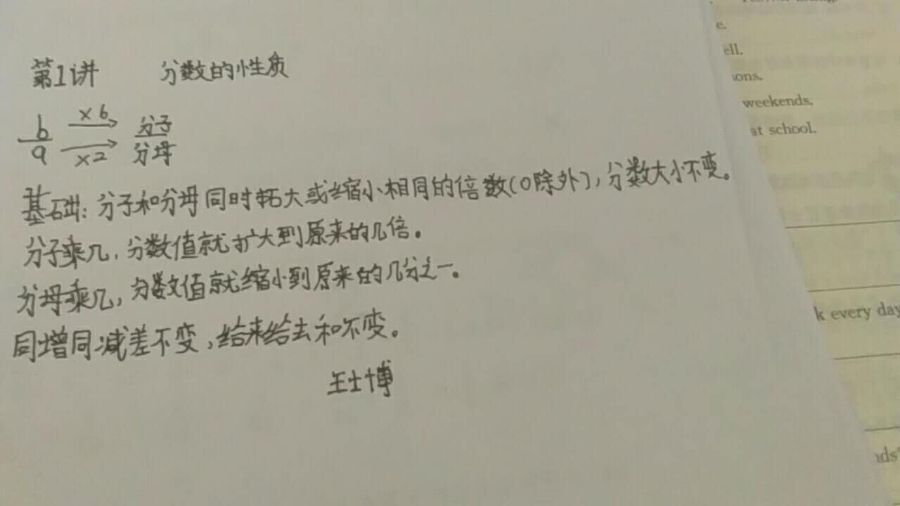 第1讲 分数的性质
b/a ×6 → 分子
×2 → 分母
基础：分子和分母同时扩大或缩小相同的倍数(0除外)，分数大小不变。
分子乘几，分数值就扩大到原来的几倍。
分母乘几，分数值就缩小到原来的几分之一。
同增同减差不变，给来给去和不变。
王士博
ell.
weekends.
at school.
k every day